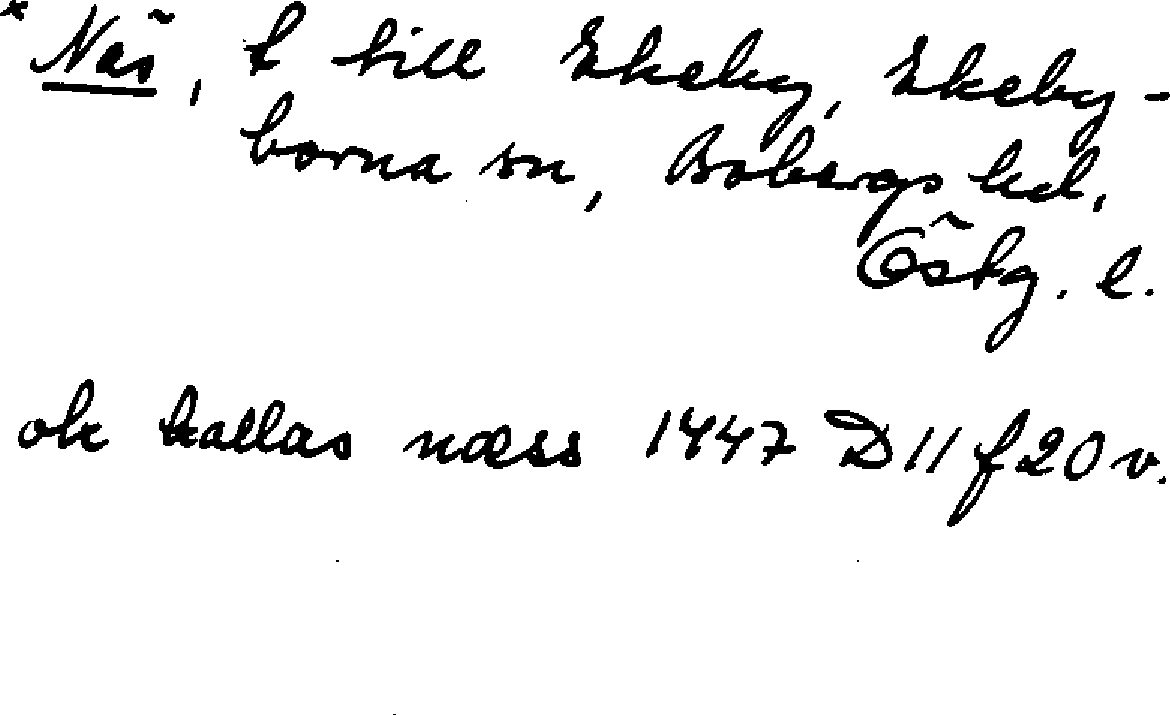 * Näs, t till Ekeby, Ekeby-
borna sn, Bobergs hd,
Östg. l.
ok kallas næss 1447 D 11 f 20 v.